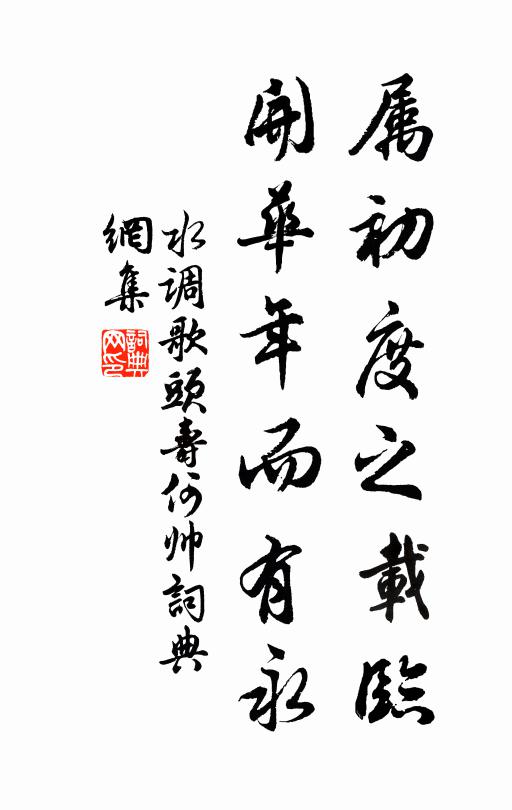 厉初度之載臨
開華年而有永
水调歌頭壽何帅詞典
網集
詞典
网印